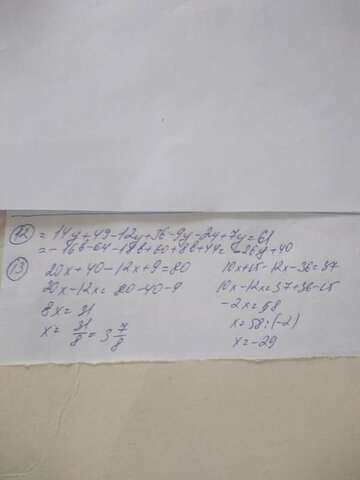 12 = 14y+49-12y+36-9y-2y+7y=61
=-16b-64-18b+60+8b+44= -26b+40
13
20x+40-12x+9=80
20x-12x=80-40-9
8x=31
x=31/8=3 7/8
10x+15-12x-36=37
10x-12x=37+36-15
-2x=58
x=58:(-2)
x=-29